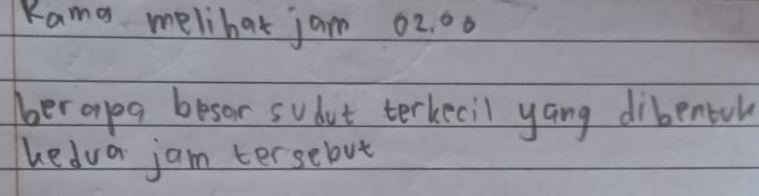 Rama melihat jam 02.00
berapa besar sudut terkecil yang dibentuk
kedua jam tersebut